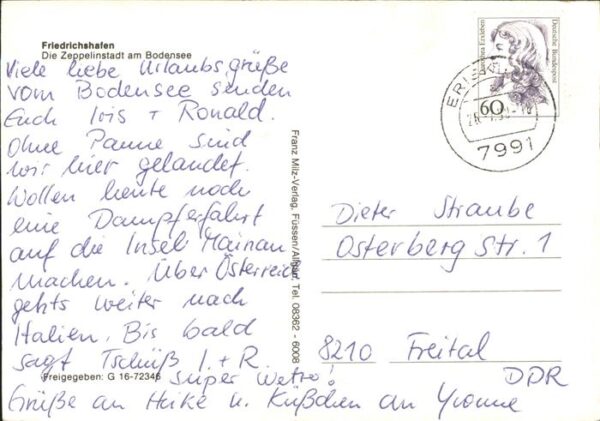 Friedrichshafen
Die Zeppelinstadt am Bodensee
Viele liebe Urlaubsgrüße
vom Bodensee senden
Euch Iris + Ronald.
Ohne Panne sind
wir hier gelandet.
Wollen heute noch
eine Dampferfahrt
auf die Insel Mainau
machen. Über Österreich
gehts weiter nach
Italien. Bis bald
sagt Tschüß I. + R.
Freigegeben: G 16-72346
super Wetter!
Grüße an Heike u. Küßchen an Yvonne
Franz Milz-Verlag, Füssen/Allgäu, Tel. 08362 - 6008
Deutsche Bundespost
60
7991
Dieter Straube
Osterberg Str. 1
8210 Freital
DDR